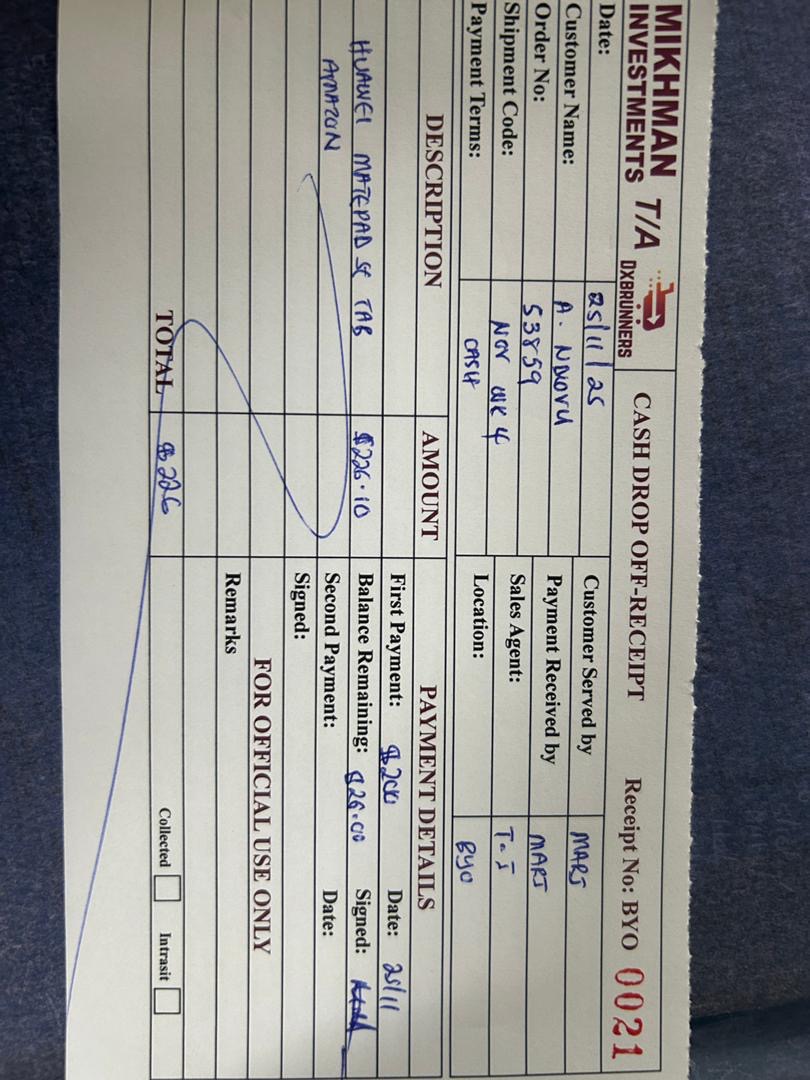 MIKHMAN
INVESTMENTS T/A DXBRUNNERS
CASH DROP OFF-RECEIPT
Receipt No: BYO 0021
Date: 25/11/25
Customer Served by MART
Customer Name: A. NDLOVU
Payment Received by MART
Order No: 53859
Sales Agent: T.J
Shipment Code: NOV WK 4
Location: BYO
Payment Terms: CASH
DESCRIPTION AMOUNT PAYMENT DETAILS
First Payment: $200 Date: 25/11
HUAWEI MATEPAD SE TAB $226.10 Balance Remaining: $26.00 Signed:
AMAZON Second Payment: Date:
Signed:
FOR OFFICIAL USE ONLY
Remarks
TOTAL $226
Collected Intrasit